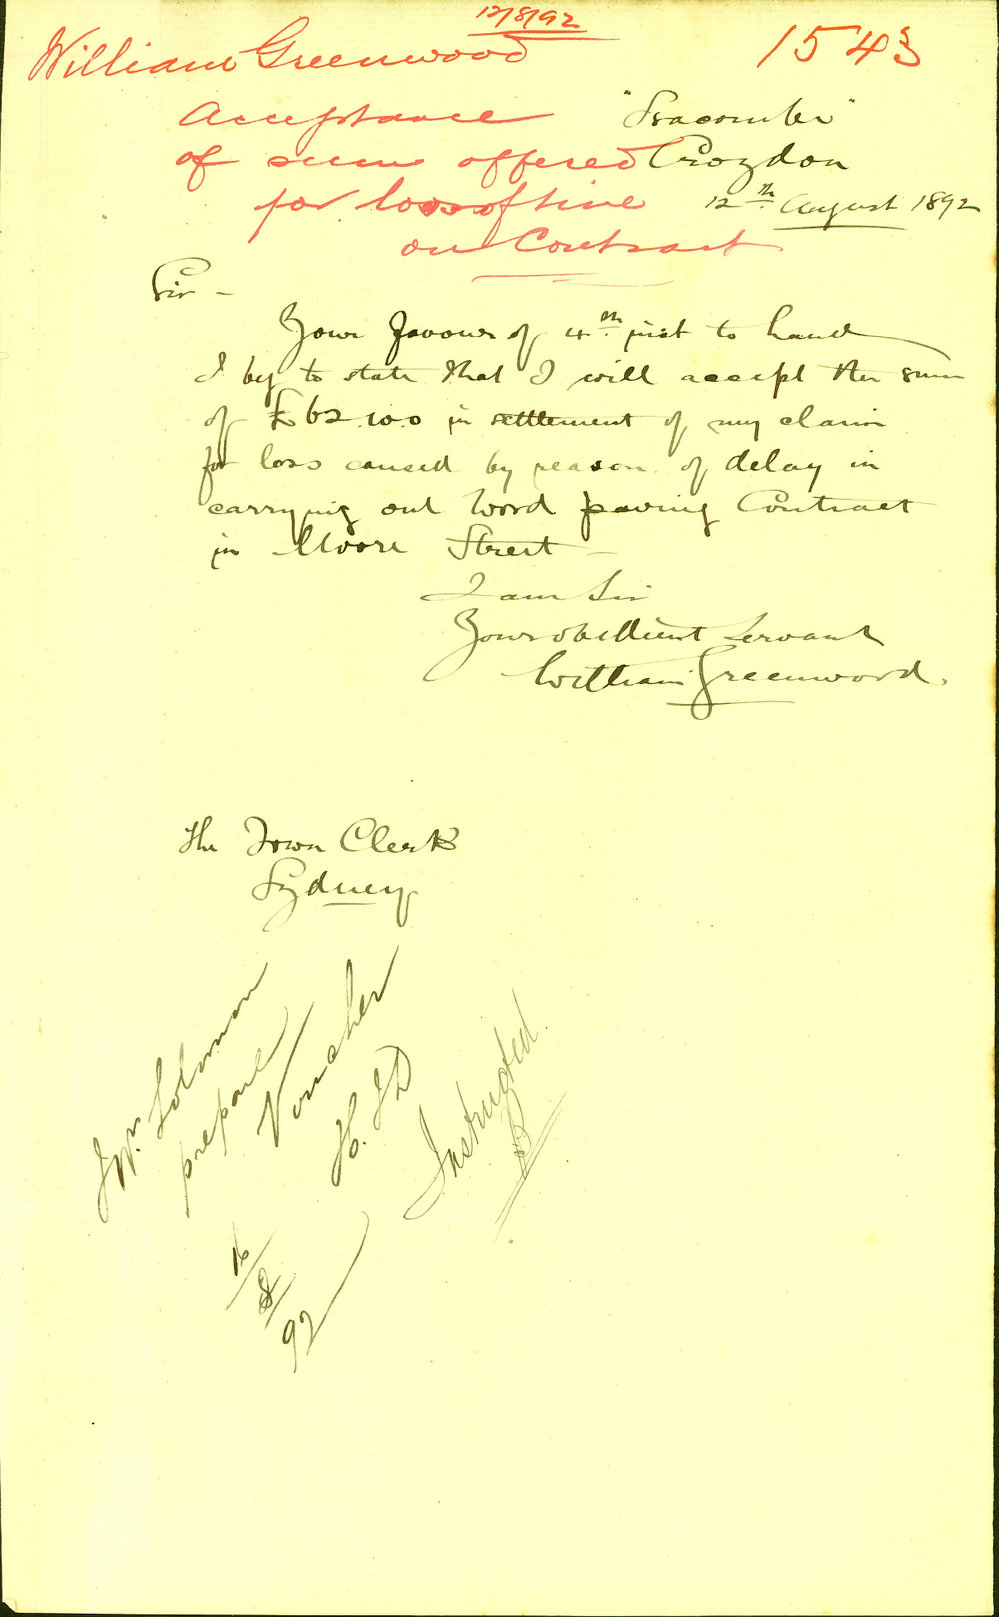 12/8/92
William Greenwood 1543
Acceptance
of sum offered
for loss of time
on Contract
Croydon
12th August 1892
Sir -
Your favour of 4th inst to hand
I beg to state that I will accept the sum
of £62.10.0 in settlement of my claim
for loss caused by reason of delay in
carrying out Wood paving Contract
in Moore Street -
I am Sir
Your obedient Servant
William Greenwood.
The Town Clerk
Sydney
Mr. Solomon
prepare
Voucher
16/8/92
Instructed